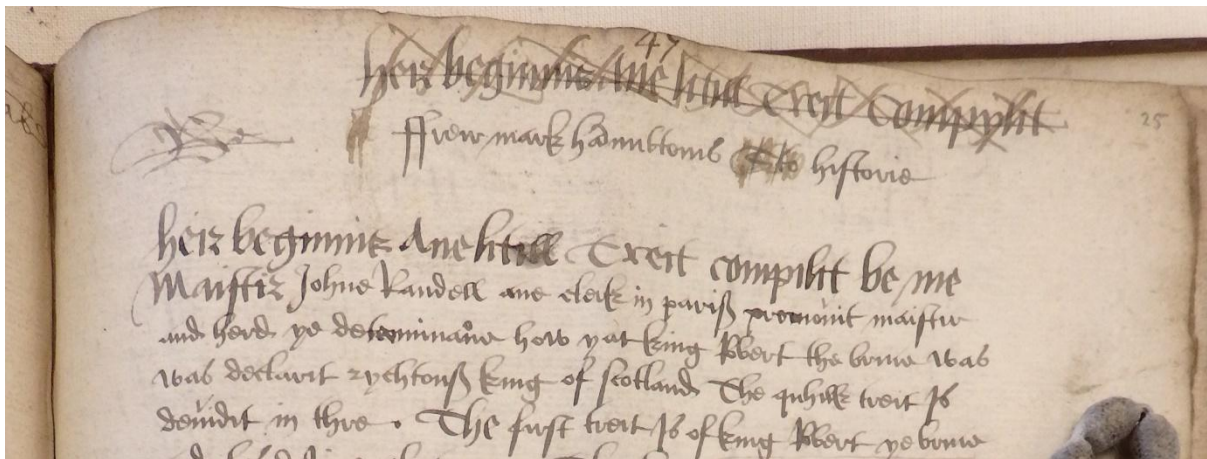 47
her beginnis ane litill treit compylit
25
ffreir mark hamiltonis historie
her beginnis Ane litill Treit compilit be me
Maistir Johne Randell ane clerk in pariß promovit maistir
and herd ye determinatione how yat king Robert the bruce was
was declarit rychtouß king of scotland The quhilk treit Is
devidit in thre . The first treit Is of king Robert ye bruce